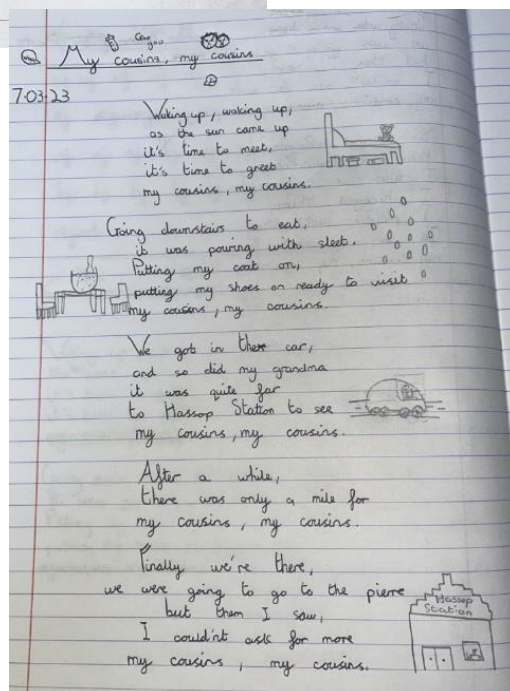 My cousins, my cousins
7.03.23
Waking up, waking up,
as the sun came up
it's time to meet,
it's time to greet
my cousins, my cousins.
Going downstairs to eat,
it was pouring with sleet.
Putting my coat on,
putting my shoes on ready to visit
my cousins, my cousins.
We got in there car,
and so did my grandma
it was quite far
to Hassop Station to see
my cousins, my cousins.
After a while,
there was only a mile for
my cousins, my cousins.
Finally we're there,
we were going to go to the pierre
but them I saw,
I could'nt ask for more
my cousins, my cousins.
Hassop
Station